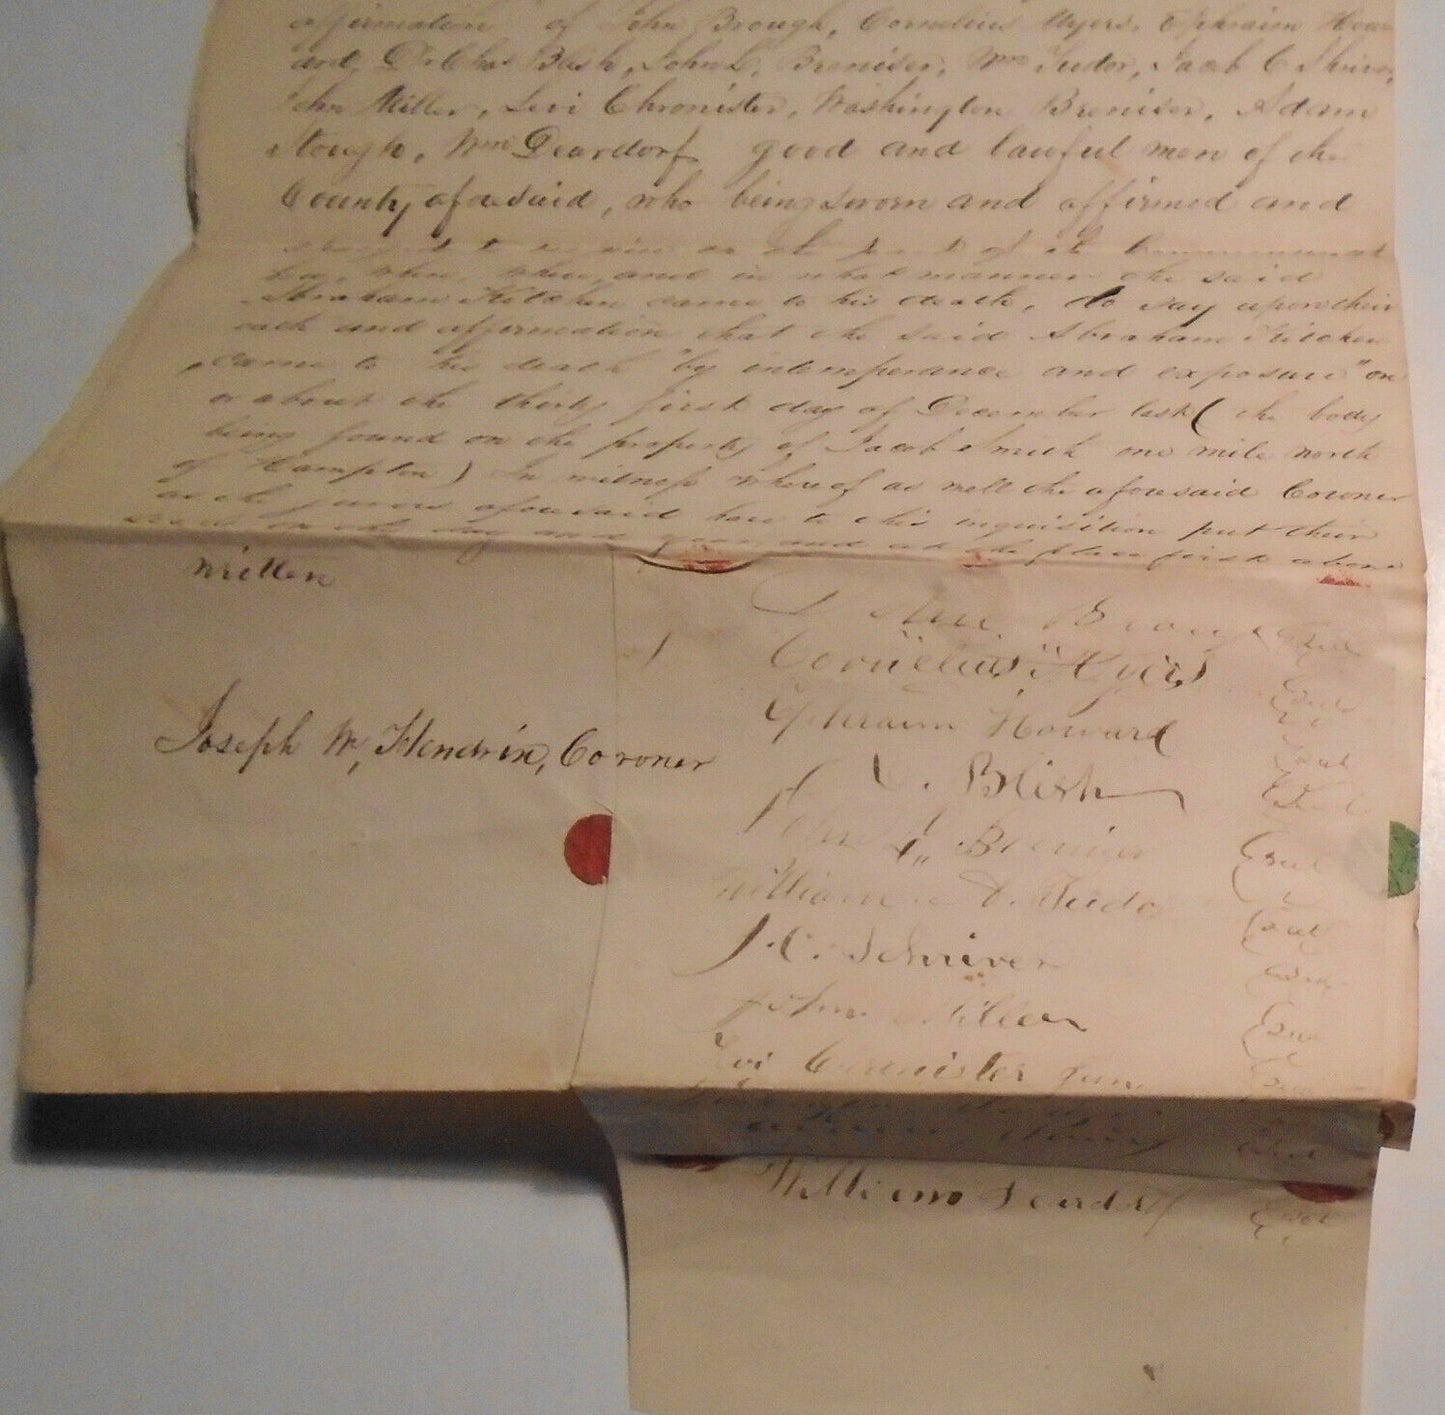 affirmation of John Brough, Cornelius Myers, Ephraim How
ard, Dr Chas Blish, John L. Breniser, Wm Tudor, Jacob C Shriver,
John Miller, Levi Chronister, Washington Breniser, Adam
Stough, Wm Deardorf good and lawful men of the
County aforesaid, who being sworn and affirmed and
to inquire on the part of the Commonwealth
when, where, and in what manner the said
Abraham Kitchen came to his death, do say upon their
oath and affirmation that the said Abraham Kitchen
came to his death "by intemperance and exposure" on
or about the thirty first day of December last ( the body
being found on the property of Jacob Smith one mile north
of Hampton ) In witness whereof as well the aforesaid Coroner
as the jurors aforesaid have to this inquisition put their
seals on the day and year and at the place first above
written
John Brough Seal
Cornelius Myers Seal
Ephraim Howard Seal
Joseph W, Hendrix, Coroner
C. Blish Seal
John L. Breniser Seal
William D. Tudor Seal
J. C. Schriver Seal
John Miller Seal
Levi Chronister Jun. Seal
Seal
William Deardorf Seal